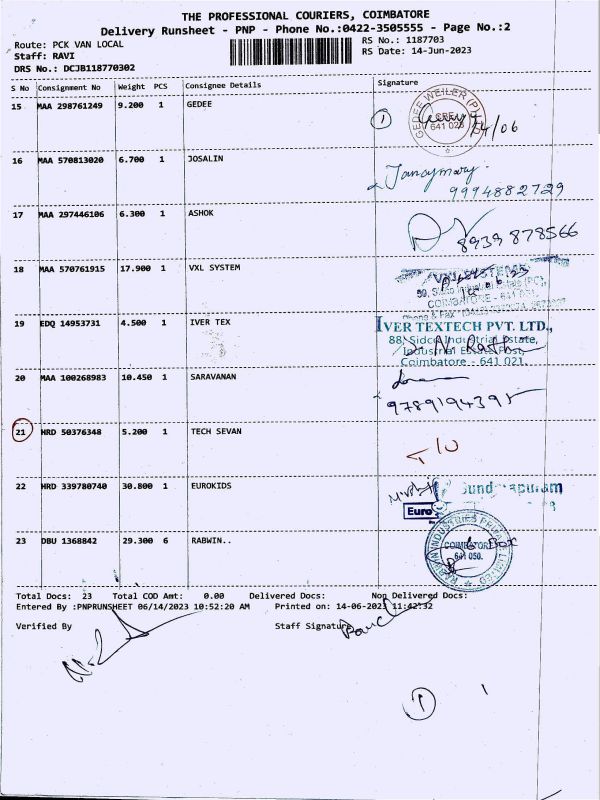 THE PROFESSIONAL COURIERS, COIMBATORE
Delivery Runsheet - PNP - Phone No.:0422-3505555 - Page No.:2
Route: PCK VAN LOCAL RS No.: 1187703
Staff: RAVI RS Date: 14-Jun-2023
DRS No.: DCJB118770302
S No Consignment No Weight PCS Consignee Details Signature
15 MAA 298761249 9.200 1 GEDEE
GEDEE WEILER (P) LTD
641 028
1
16 MAA 570813020 6.700 1 JOSALIN
Jancymary
9994882729
17 MAA 297446106 6.300 1 ASHOK
8939878566
18 MAA 570761915 17.900 1 VXL SYSTEM
COIMBATORE - 641 021.
19 EDQ 14953731 4.500 1 IVER TEX
IVER TEXTECH PVT. LTD.,
88, Sidco Industrial Estate,
Industrial Estate Post,
Coimbatore - 641 021.
20 MAA 100268983 10.450 1 SARAVANAN
21 HRD 50376348 5.200 1 TECH SEVAN
22 HRD 339780740 30.800 1 EUROKIDS
Euro
23 DBU 1368842 29.300 6 RABWIN..
RABWIN INDUSTRIES PRIVATE LIMITED
COIMBATORE
641 050.
6 Box
Total Docs: 23 Total COD Amt: 0.00 Delivered Docs: Non Delivered Docs:
Entered By :PNPRUNSHEET 06/14/2023 10:52:20 AM Printed on: 14-06-2023 11:42:32
Verified By Staff Signature
1